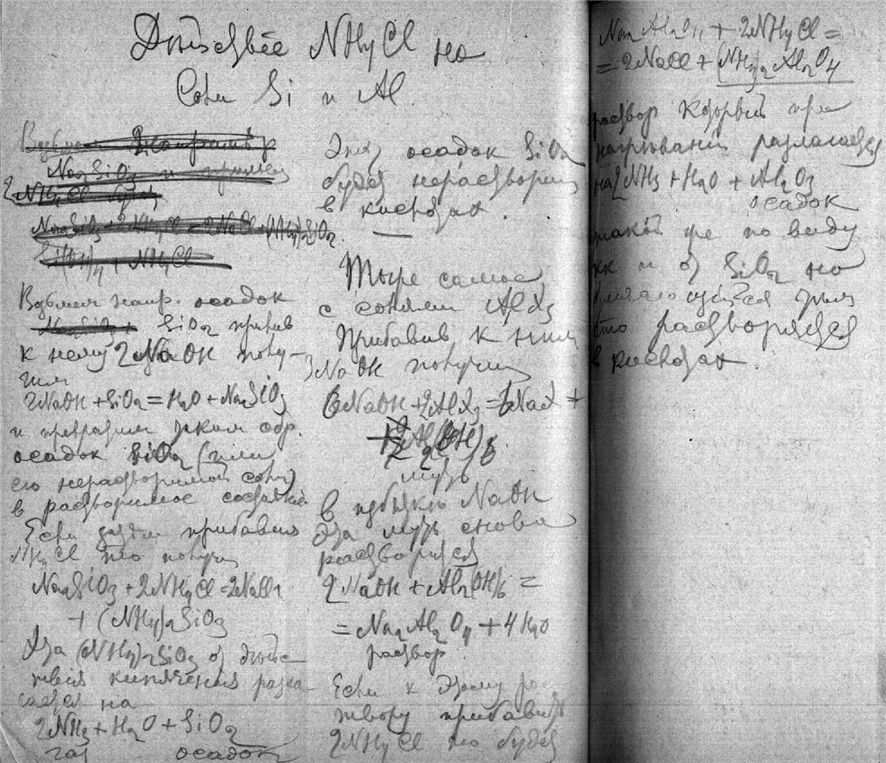 Действие NH4Cl на
Соли Si и Al
Возьмем например
Na2SiO3 и прильем
2NH4Cl будет
Na2SiO3+2NH4Cl=2NaCl+(NH4)2SiO3
Si(OH)4 + NH4Cl
Возьмем напр. осадок
Na2SiO3+ SiO2 прибав
к нему 2NaOH полу-
чим
2NaOH+SiO2=H2O+Na2SiO3
и превратим таким обр.
осадок SiO2 (или
его нерастворимой соли)
в растворимое состояние
Если затем прибавим
NH4Cl то получ
Na2SiO3+2NH4Cl=2NaCl+
+(NH4)2SiO3
Эта (NH4)2SiO3 от дейс-
твия кипячения разла
гается на
2NH3+H2O+SiO2
газ осадок
Этот осадок SiO2
будет нерастворим
в кислотах.
Тоже самое
с солями AlX3
Прибавив к ним
3NaOH получим
6NaOH+2AlX3=6NaX+
+Al2(OH)6
муть
В избытке NaOH
эта муть снова
растворится
2NaOH+Al2(OH)6=
=Na2Al2O4+4H2O
раствор
Если к этому рас
твору прибавить
2NH4Cl то будет
Na2Al2O4+2NH4Cl=
=2NaCl+(NH4)2Al2O4
раствор который при
нагревании разлагается
на 2NH3+H2O+Al2O3
осадок
такой же по виду
как и от SiO2 но
отличающийся тем
что растворяется
в кислотах.